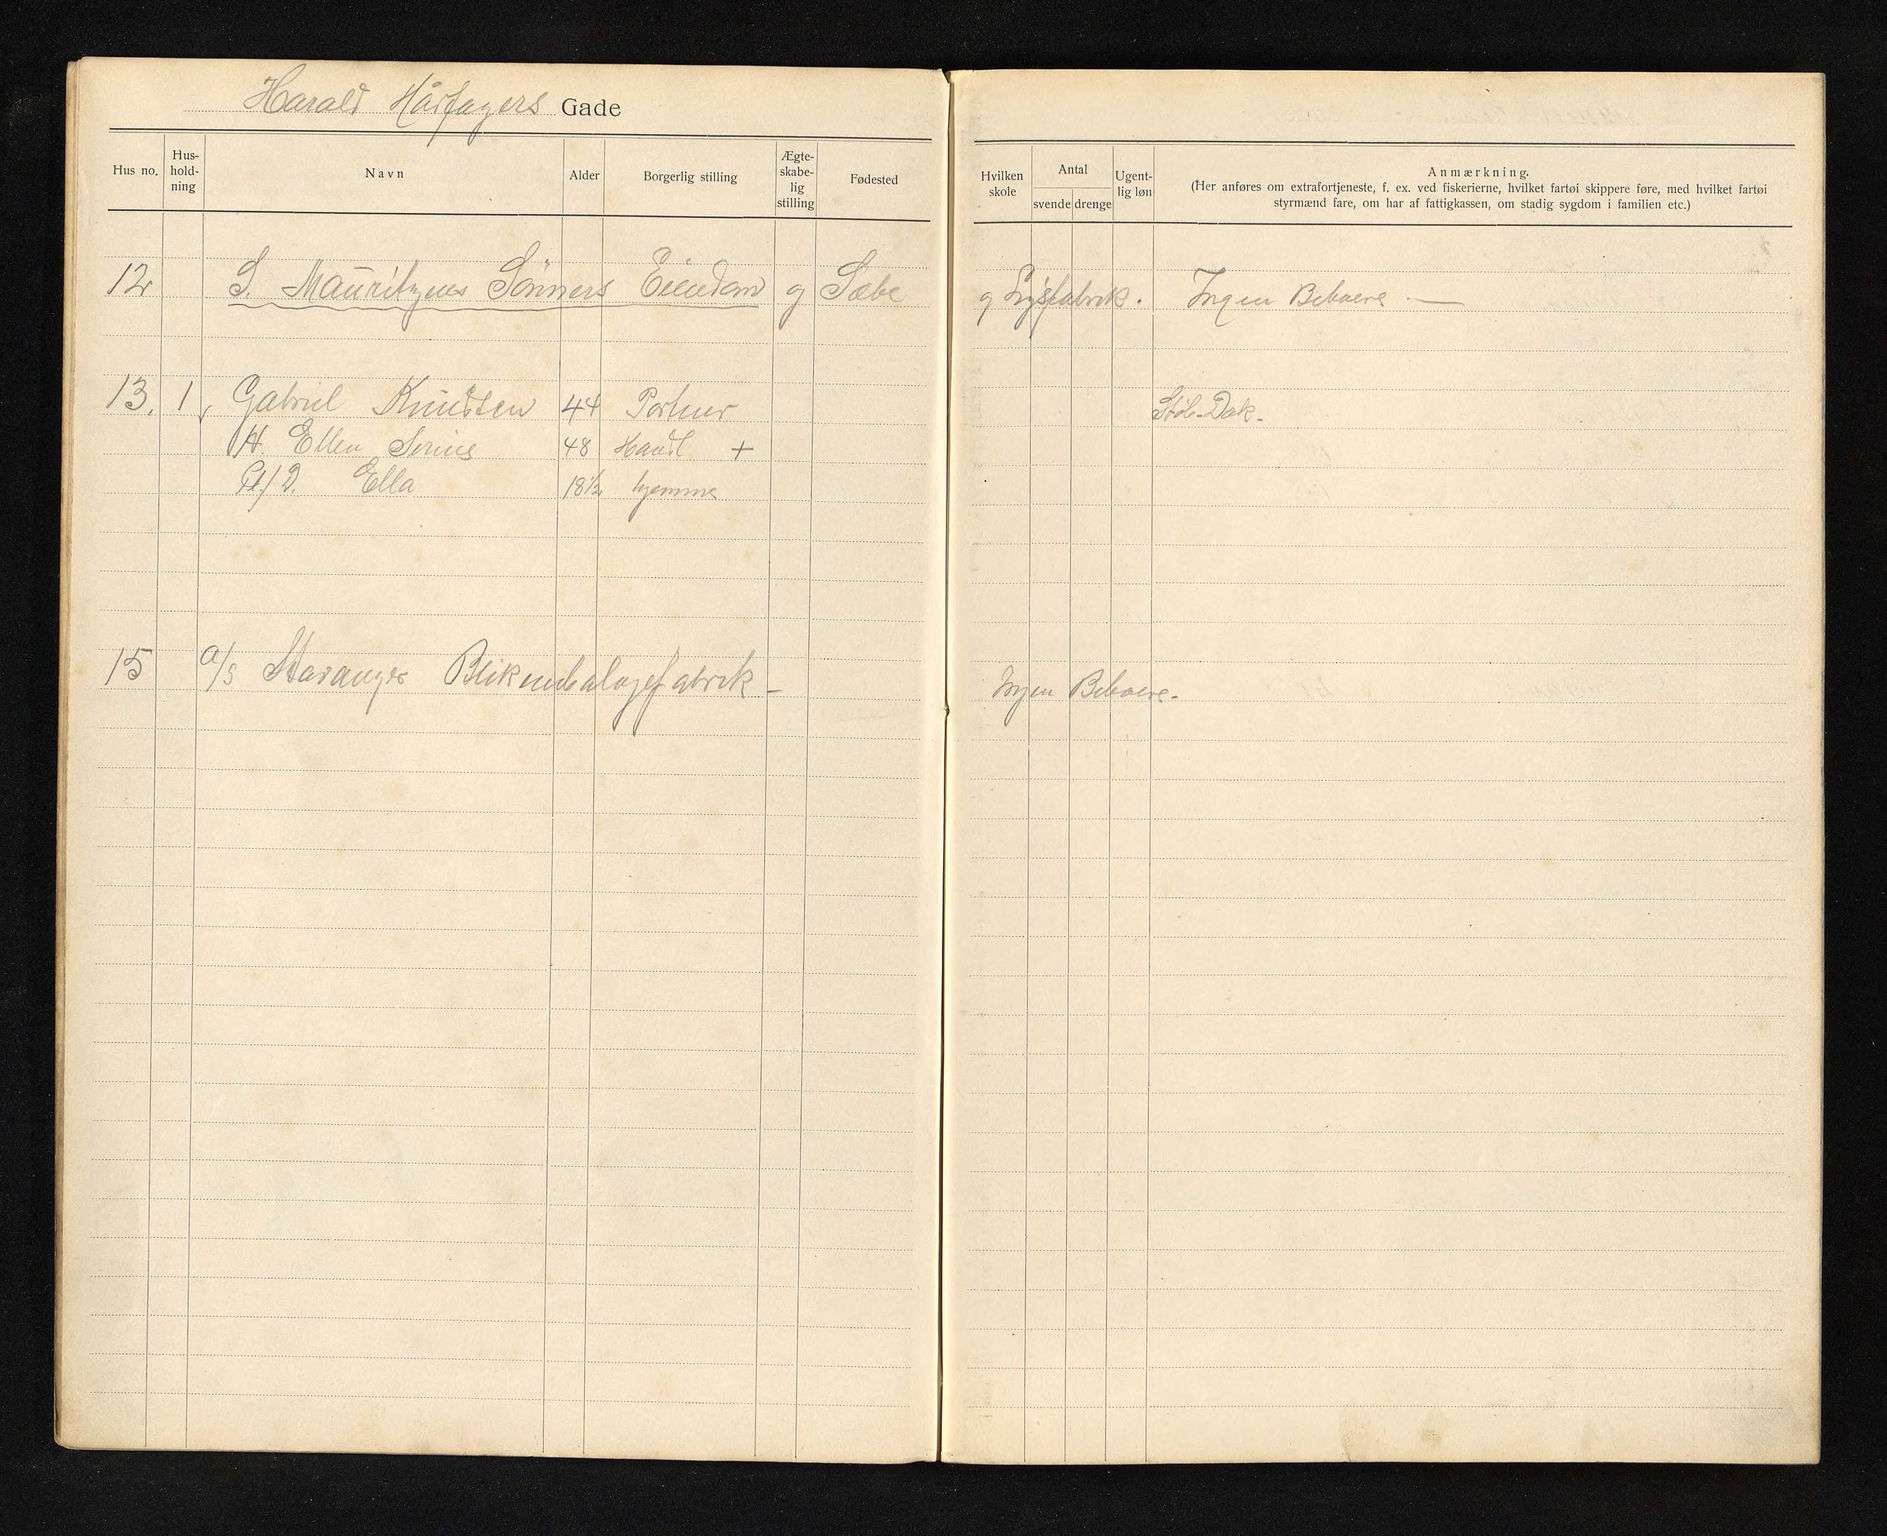 Harald Hårfagers Gade
Hus no.
Hus-
hold-
ning
Navn
Alder
Borgerlig stilling
Ægte-
skabe-
lig
stilling
Fødested
Hvilken
skole
Antal
svende drenge
Ugent-
lig løn
Anmærkning.
(Her anføres om extrafortjeneste, f. ex. ved fiskerierne, hvilket fartøi skippere føre, med hvilket fartøi
styrmænd fare, om har af fattigkassen, om stadig sygdom i familien etc.)
12 S. Mauritzens Sönners Eiendom og Sæbe og Lysfabrik. Ingen Beboere. —
13. 1, Gabriel Knudsen 44 Portner Støb. Dok.
H. Ellen Serine 48 Handl +
Pl/D. Ella 18½ hjemme
15 A/S Stavanger Blikemballagefabrik - Ingen Beboere.